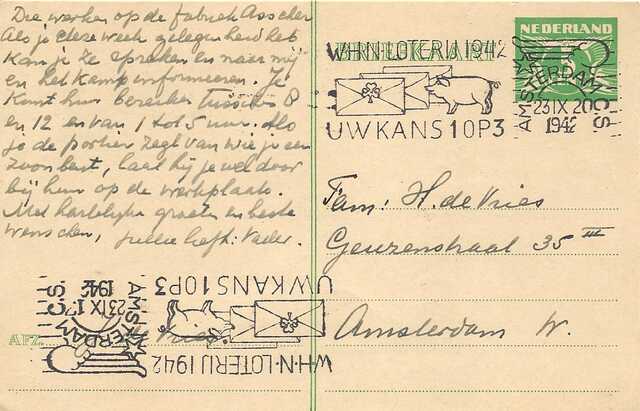 Die werken op de fabriek Asscher
Als je deze week gelegenheid hebt
kan je ze spreken en naar mij
en het kamp informeeren. Je
kunt hun bereiken tusschen 8
en 12 en van 1 tot 5 uur. Als
je de portier zegt van wie je een
zoon bent, laat hij je wel door
bij hun op de werkplaats.
Met hartelijke groeten en beste
wenschen, jullie liefh: Vader.
NEDERLAND
W·H·N·LOTERIJ 1942
UW KANS 1 OP 3
AMSTERDAM
23 IX 20
1942
Fam: H. de Vries
Geuzenstraat 35 III
Amsterdam W.
AFZ.
Vries
UW KANS 1 OP 3
W·H·N·LOTERIJ 1942
AMSTERDAM
23 IX 17
1942